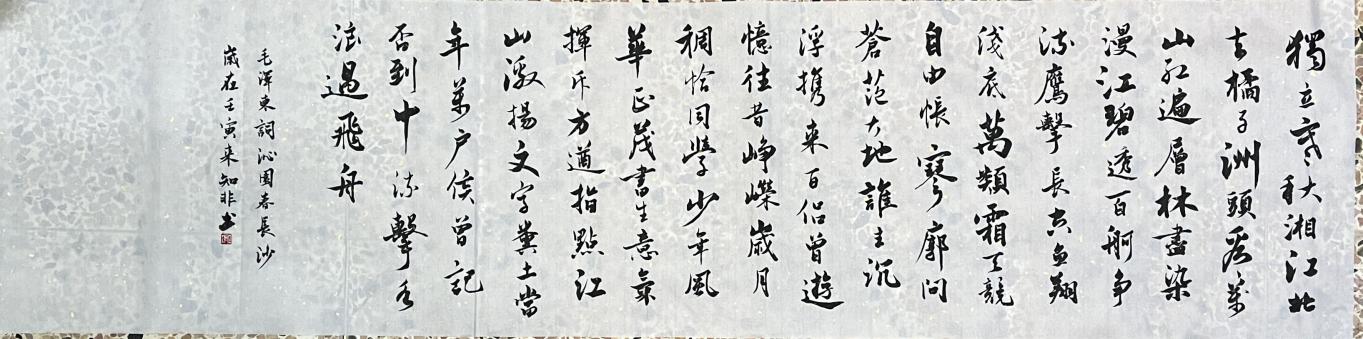 獨立寒秋湘江北
去橘子洲頭看萬
山紅遍層林盡染
漫江碧透百舸争
流鷹擊長空魚翔
淺底萬類霜天競
自由悵寥廓問
蒼茫大地誰主沉
浮携来百侣曾遊
憶往昔崢嶸歲月
稠恰同學少年風
華正茂書生意氣
揮斥方遒指點江
山激揚文字糞土當
年萬户侯曾記
否到中流擊水
浪遏飛舟
毛澤東詞沁園春長沙
歲在壬寅来知非書